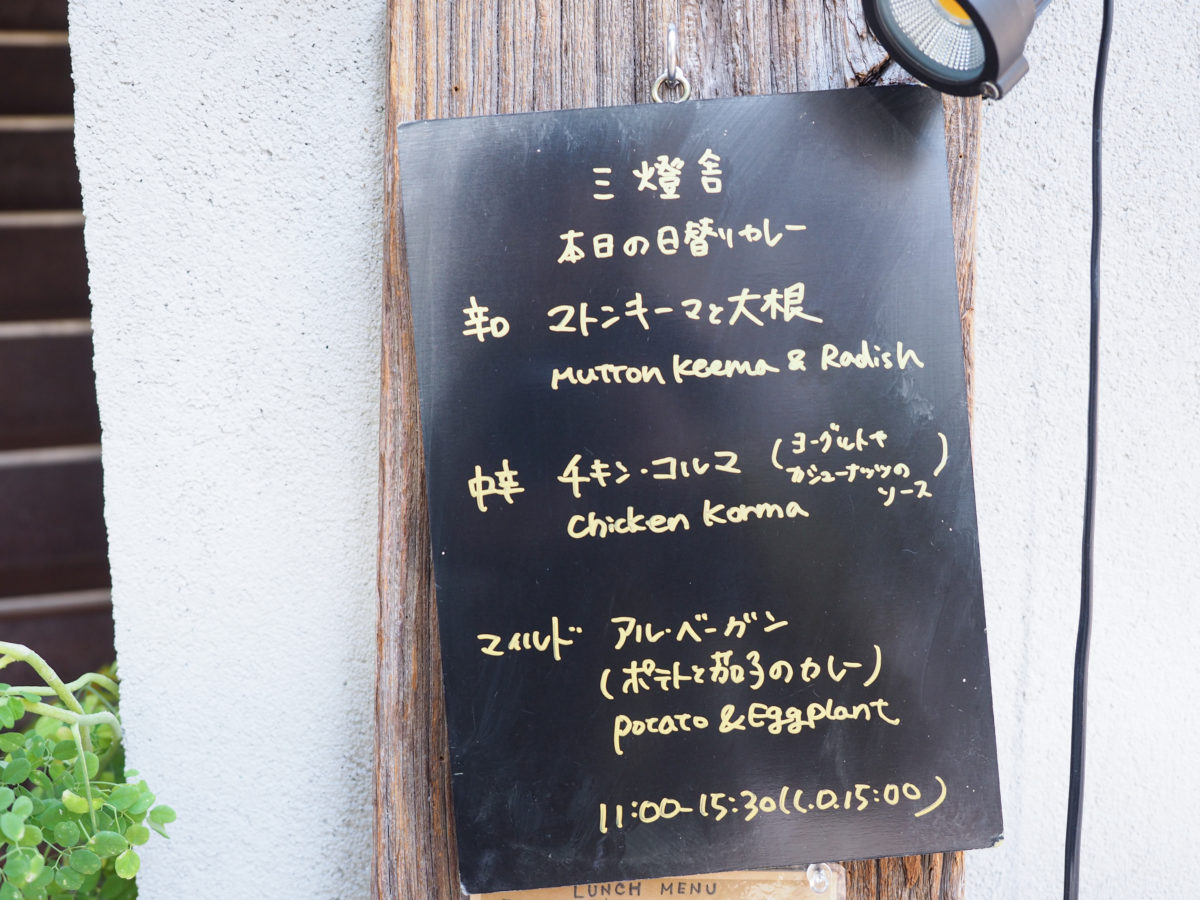 三燈舎
本日の日替りカレー
辛口 マトンキーマと大根
Mutton Keema & Radish
中辛 チキン・コルマ (ヨーグルトや
カシューナッツの
ソース)
Chicken Korma
マイルド アル・ベーガン
(ポテトと茄子のカレー)
Potato & Eggplant
11:00-15:30(L.O.15:00)
LUNCH MENU